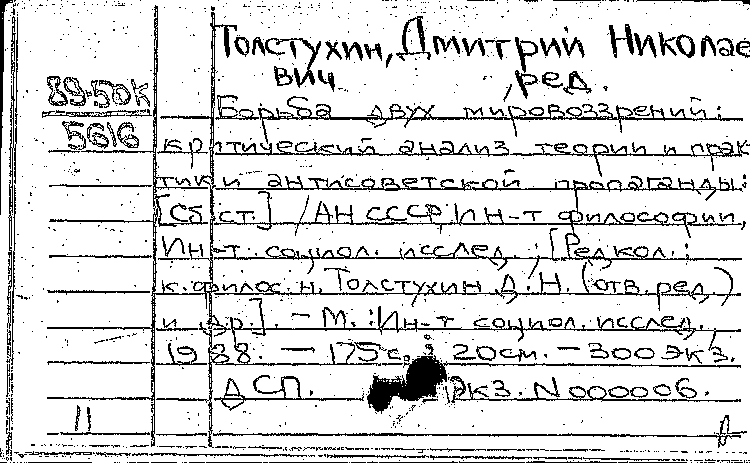 Толстухин, Дмитрий Николае
вич, ред.
89-50К
5616
Борьба двух мировоззрений:
критический анализ теории и прак
тики антисоветской пропаганды:
[Сб. ст.] / АН СССР, Ин-т философии,
Ин-т социол. исслед.; [Редкол.:
к. филос. н. Толстухин Д. Н. (отв. ред.)
и др.]. - М.: Ин-т социол. исслед.,
1988. - 175 с.; 20 см. - 300 экз.
ДСП. Экз. N 000006.
11